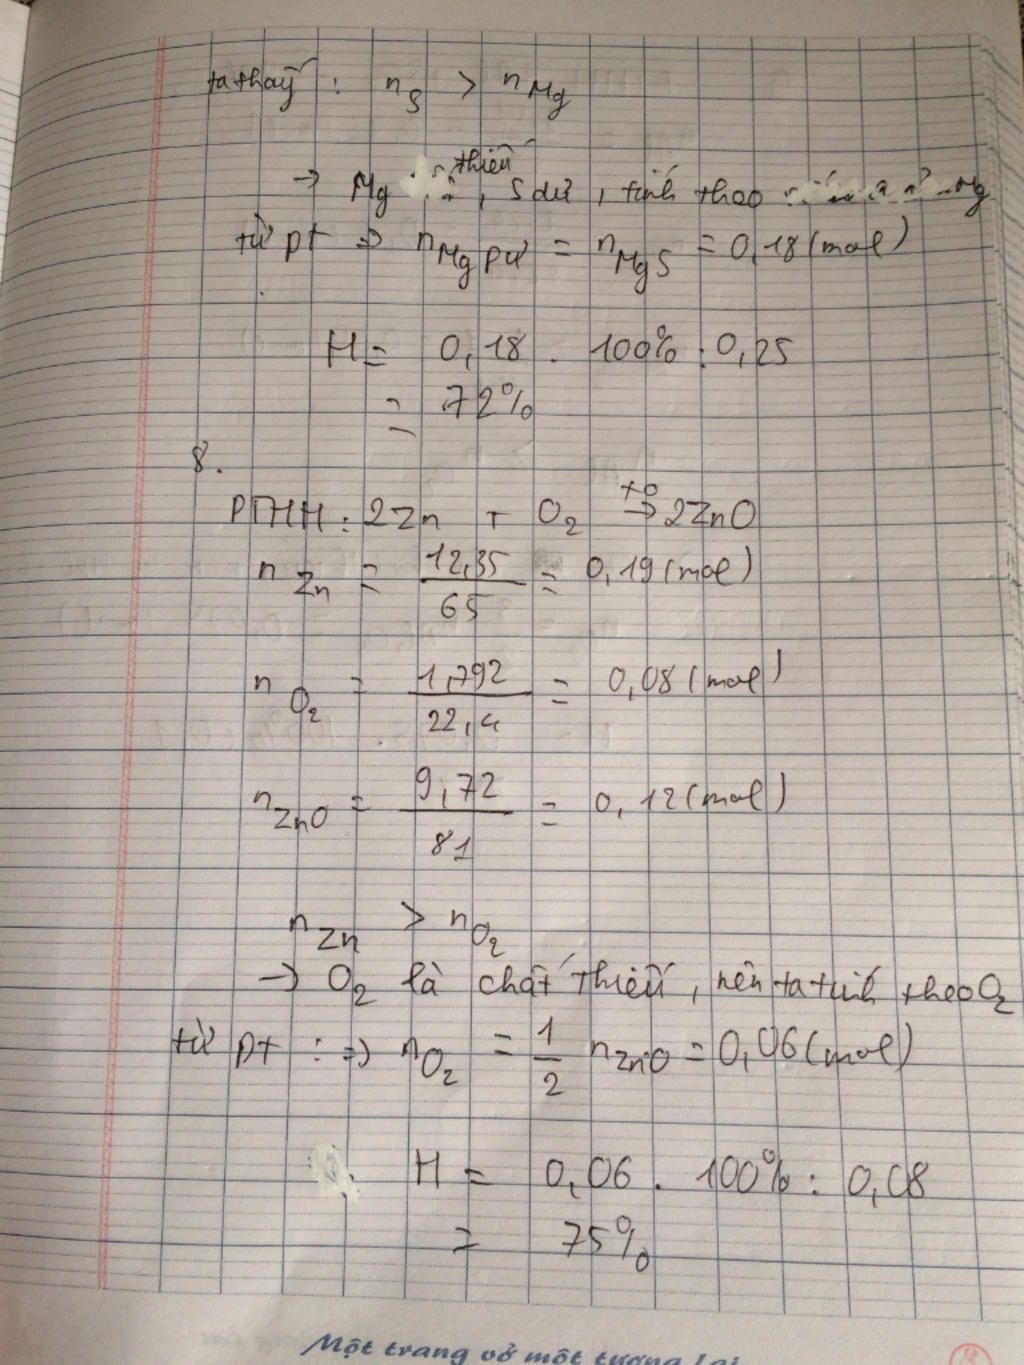 ta thấy : n_S > n_Mg
→ Mg thiếu, S dư, tính theo Mg
từ pt ⇒ n_Mg pư = n_MgS = 0,18 (mol)
H = 0,18 . 100% : 0,25
= 72%
8.
PTHH : 2Zn + O₂ →(t°) 2ZnO
n_Zn = 12,35/65 = 0,19 (mol)
n_O₂ = 1,792/22,4 = 0,08 (mol)
n_ZnO = 9,72/81 = 0,12 (mol)
n_Zn > n_O₂
→ O₂ là chất thiếu, nên ta tính theo O₂
từ pt : ⇒ n_O₂ = 1/2 n_ZnO = 0,06 (mol)
H = 0,06 . 100% : 0,08
= 75%
Một trang vở một tương lai